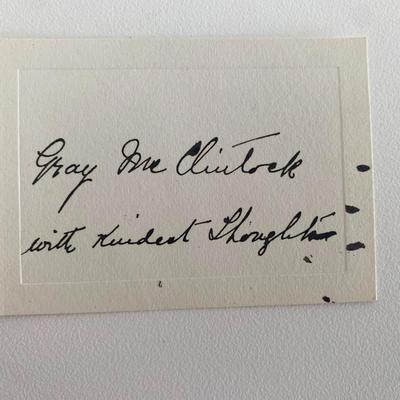 Gray Mc Clintock
with kindest Thoughts